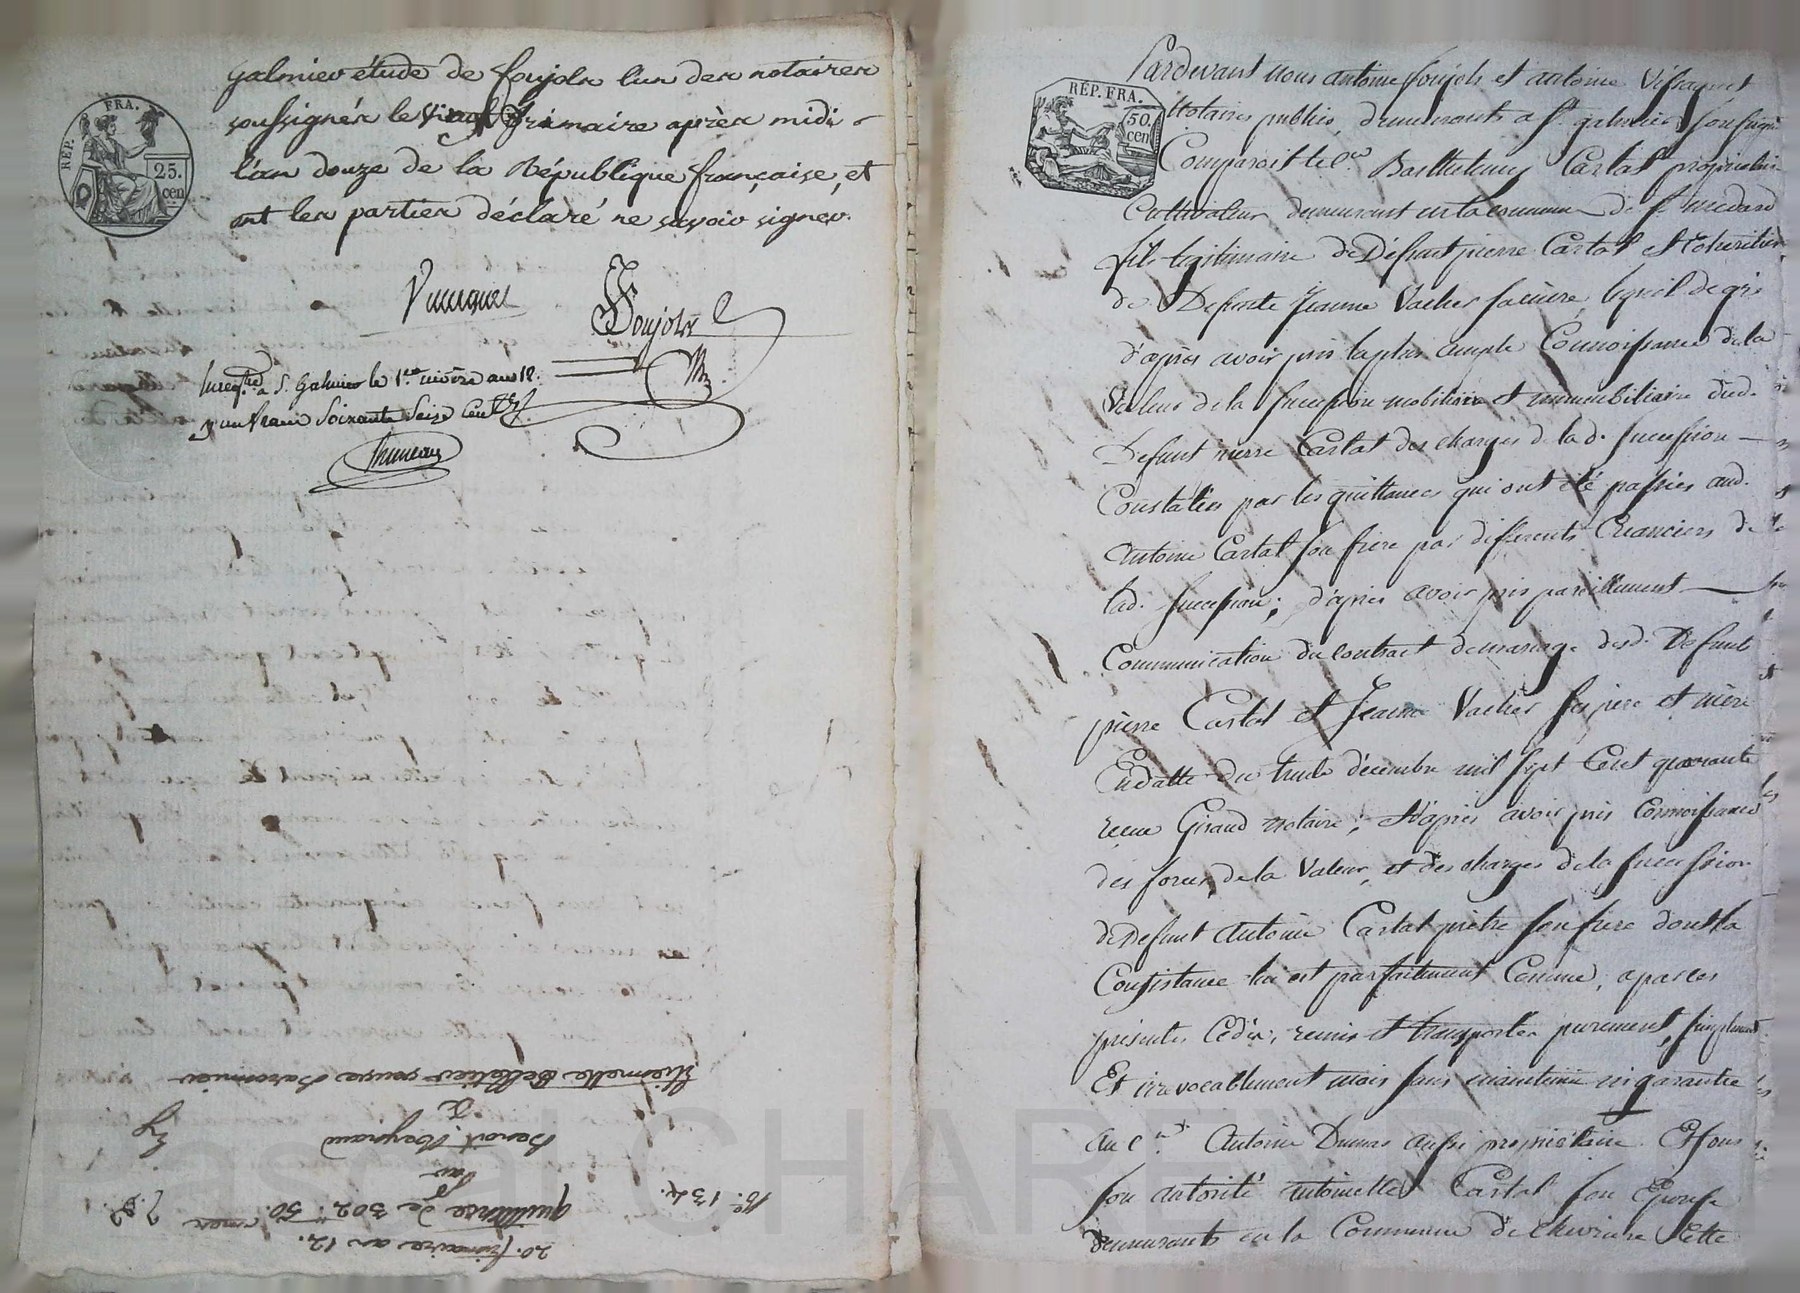 REP. FRA.
25.
cen
galmier étude de foujols l'un des notaires
soussignés le vingt frimaire après midi
l'an douze de la République française, et
ont les parties déclaré ne savoir signer.
Foujols
Enreg.tré à S. Galmier le 1.er nivôse an 12.
un franc soixante seize cent.es
20. frimaire an 12.
quittance de 302.# 50
par
Benoit Meynaud
à
Etiennette Pelletier veuve
N.º 134.
REP. FRA.
50.
cen
Pardevant nous antoine foujols et antoine
Notaires publics, demeurants a S.t galmier soussignés
Comparoit le C.en Barthelemy Cartal propriétaire
Cultivateur demeurant en la commune de S.t medard
fils legitimaire de Défunt pierre Cartal et Cohéritier
de Defunte Jeanne Vacher sa mère, lequel de gré
d'après avoir pris la plus ample Connoissance de la
Valeur de la succession mobiliaire et immobiliaire dud.
Defunt pierre Cartal des charges de lad. succession
Constatées par les quittances qui ont été passées aud.
antoine Cartal son frère par différents Créanciers de
lad. succession; d'après avoir pris pareillement
Communication du contract de mariage desd. Defunts
pierre Cartal et Jeanne Vacher ses père et mère
En datte du trente décembre mil sept Cent quarante
reçu Giraud notaire; et d'après avoir pris Connoissance
des forces, de la Valeur, et des charges de la succession
de Defunt antoine Cartal prêtre son frère dont la
Consistance lui est parfaitement Connue, a par ces
présentes Cédé, remis et transporté purement, simplement
Et irrevocablement mais sans maintenue ni garantie
au C.en Antoine Dumas aussi propriétaire Et sous
son autorité antoinette Cartal son Epouse
demeurants en la Commune de Chevrieres Cette
Pascal CHAREYRON